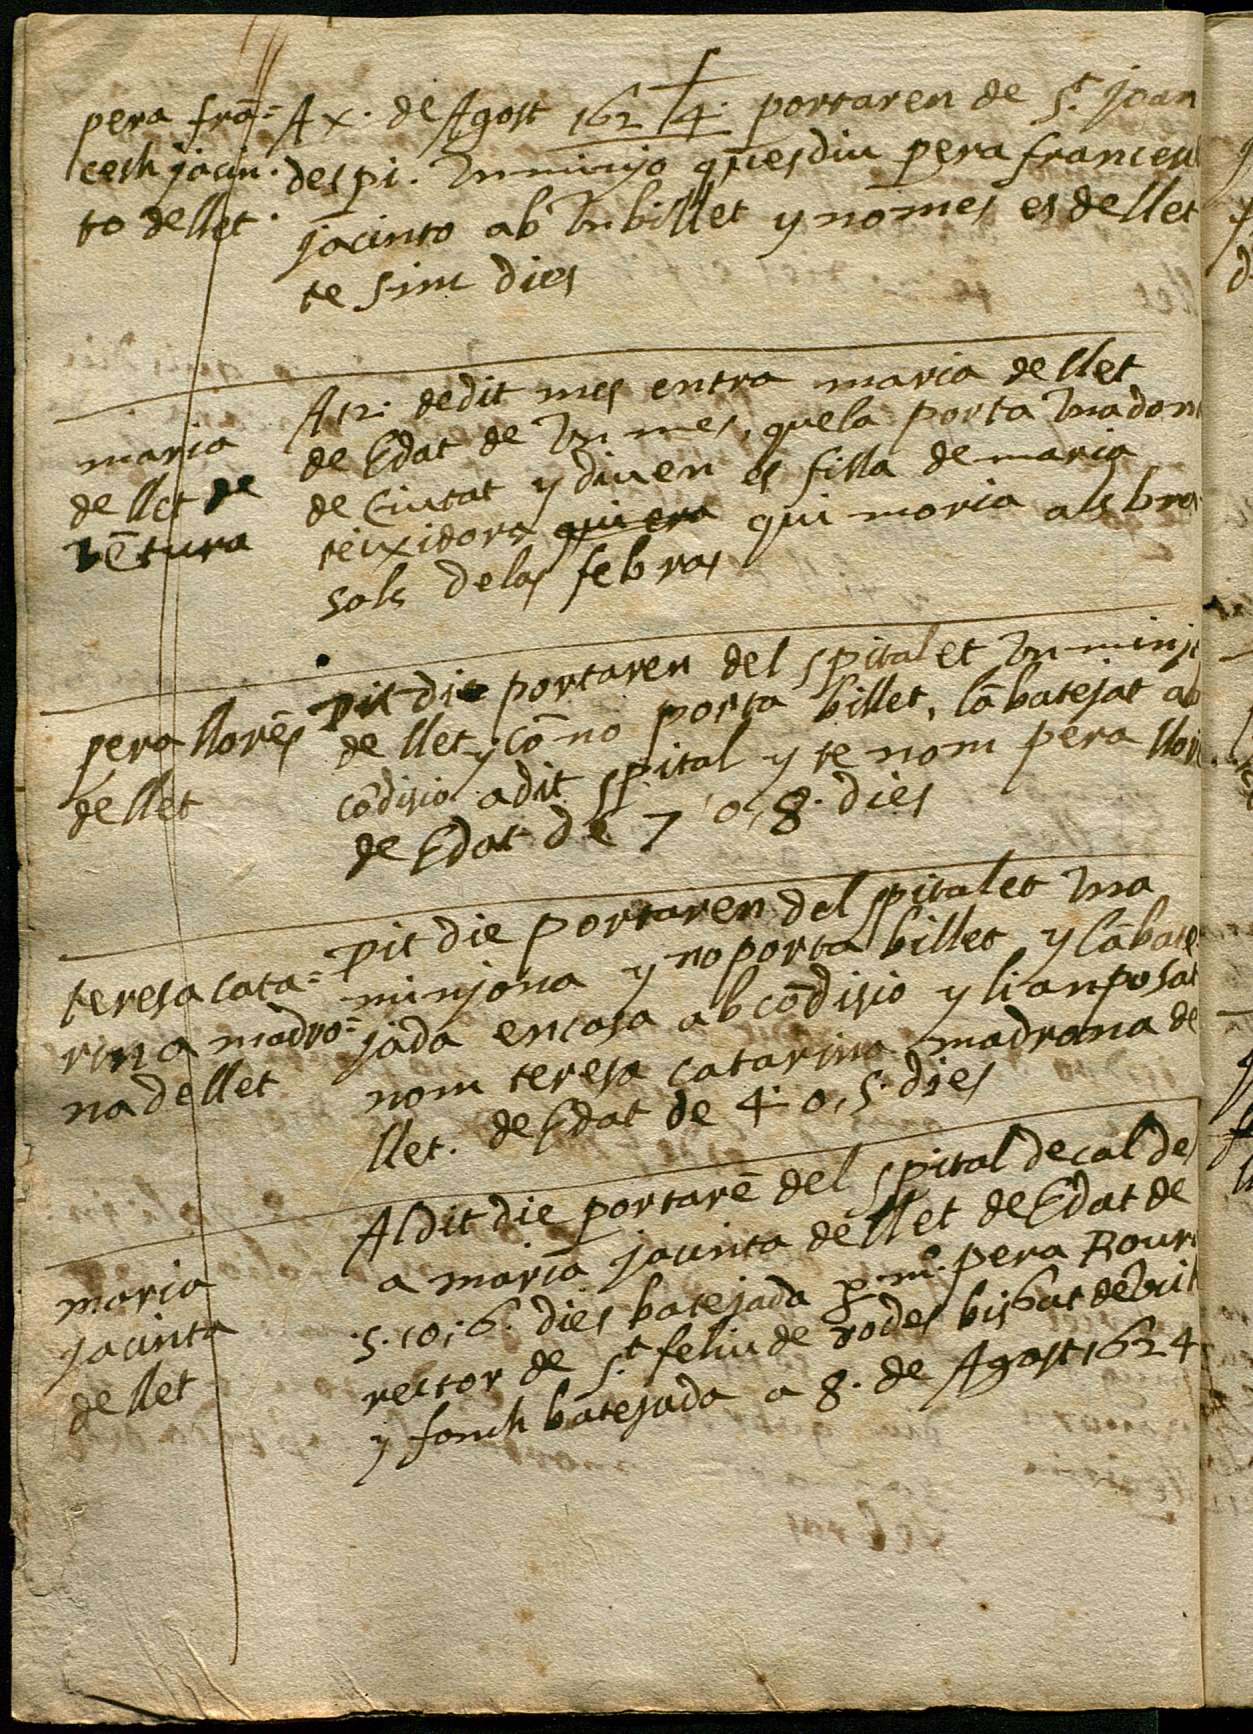 pera frã=
cesh jacin.
to de llet.
A x. de Agost 1624. portaren de St. joan
despi. Un minyo ques diu pera francesh
jacinto ab Un billet y nomes es de llet
te sinc dies
maria
de llet de
vẽtura
A 12. de dit mes entra maria de llet
de Edat de Un mes, que la porta Una dona
de Ciutat y diuen es filla de maria
teixidora qui era qui moria als bre
sols de las febras
pera llorẽs
de llet
Dit die portaren del spitalet Un minyo
de llet y cõ no porta billet, lã batejat ab
cõdisio a dit spital y te nom pera llore
de Edat de 7 o, 8. dies
teresa cata=
rina madro=
na de llet
Dit die portaren del spitalet Una
minyona y no porta billet y lã bate
jada en casa ab cõdisio y li an posat
nom teresa catarina madrona de
llet. de Edat de 4. o, 5. dies
maria
jacinta
de llet
Al dit die portarẽ del spital de caldes
a maria jacinta de llet de Edat de
5. o, 6. dies batejada p. mo. pera Roure
rector de St. feliu de rodes bisbat de Vic
y fonch batejada a 8. de Agost 1624